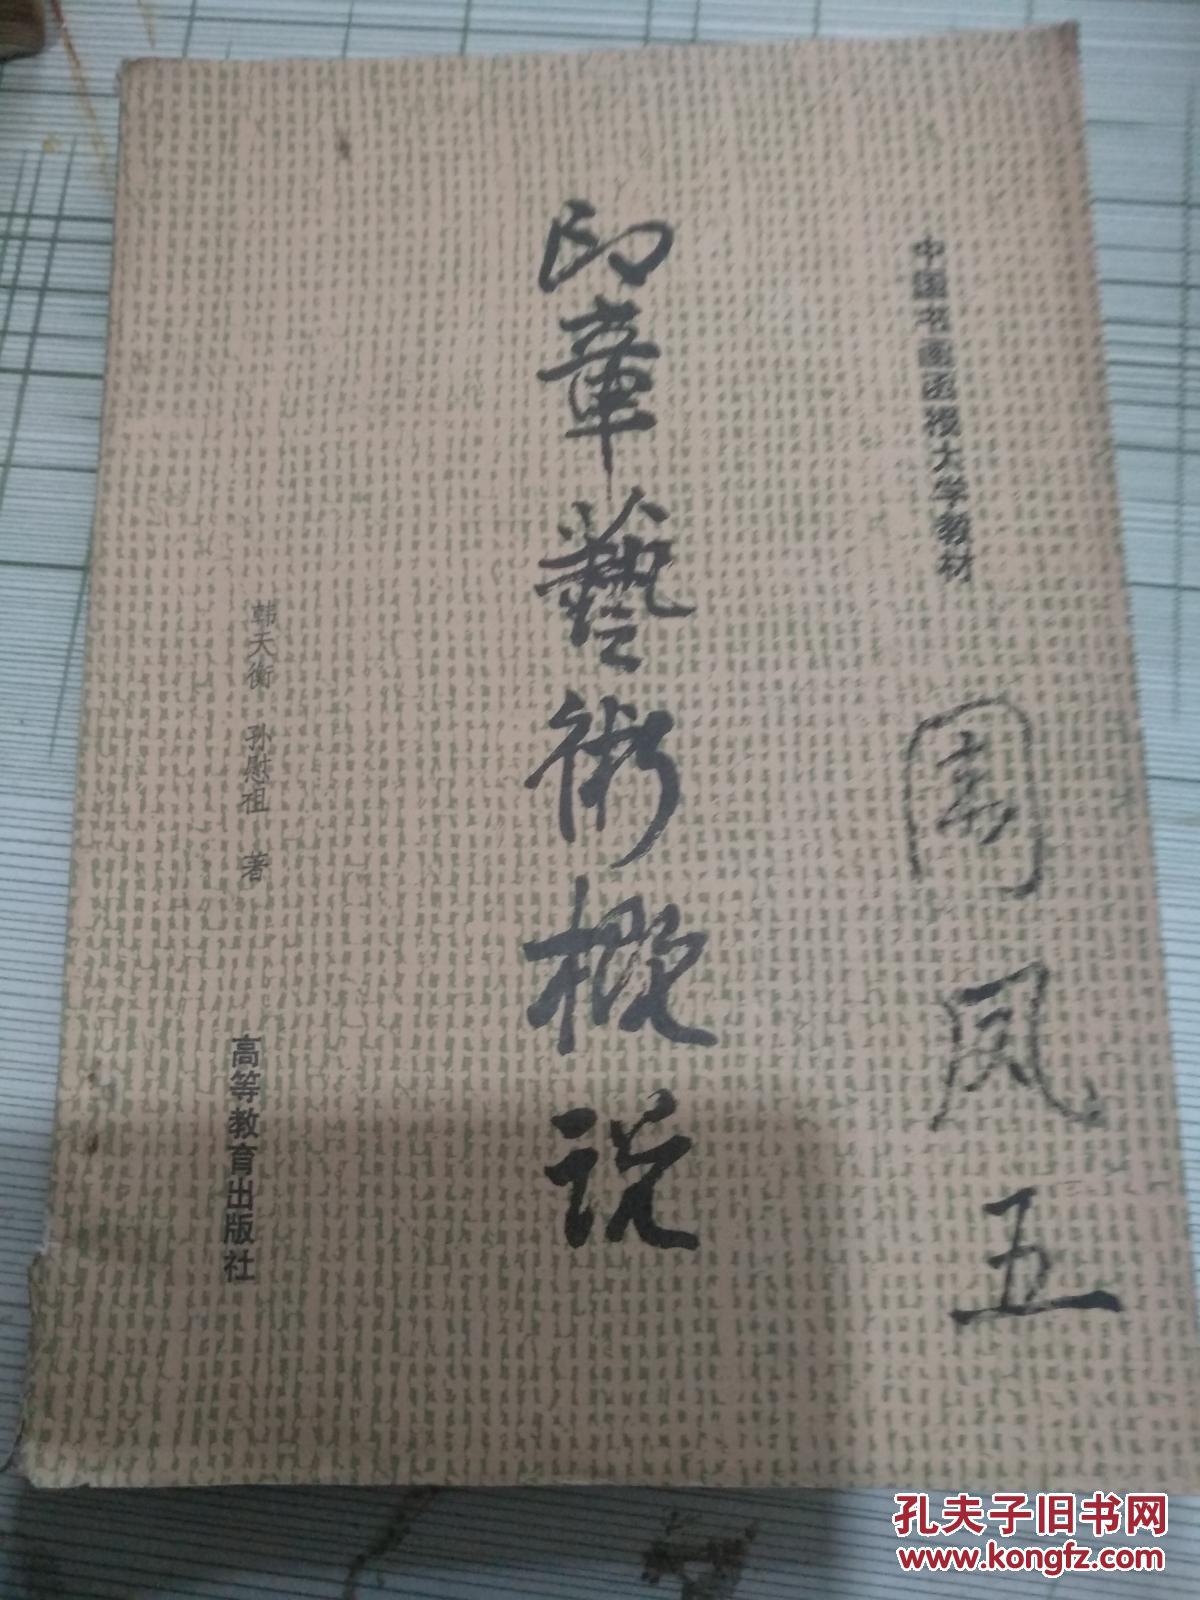 中国书画函授大学教材
印章藝術概说
韩天衡 孙慰祖 著
高等教育出版社
凤五
孔夫子旧书网
www.kongfz.com